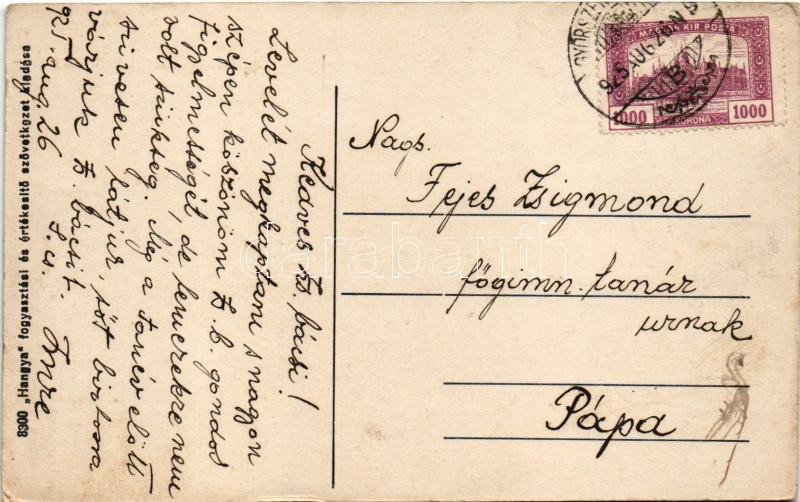 Kedves Zs. bácsi!
Levelét megkaptam s nagyon
szépen köszönöm Zs. b. gondos
figyelmességét, de lemezekre nem
volt szükség. Még a tanév előtt
szívesen látjuk, sőt biztosra
várjuk Zs. bácsit.
925. aug. 26. Imre
8300 „Hangya" fogyasztási és értékesítő szövetkezet kiadása
MAGYAR KIR. POSTA
1000 1000
KORONA
925 AUG 26
Nags.
Fejes Zsigmond
főgimn. tanár
urnak
Pápa
darabanth